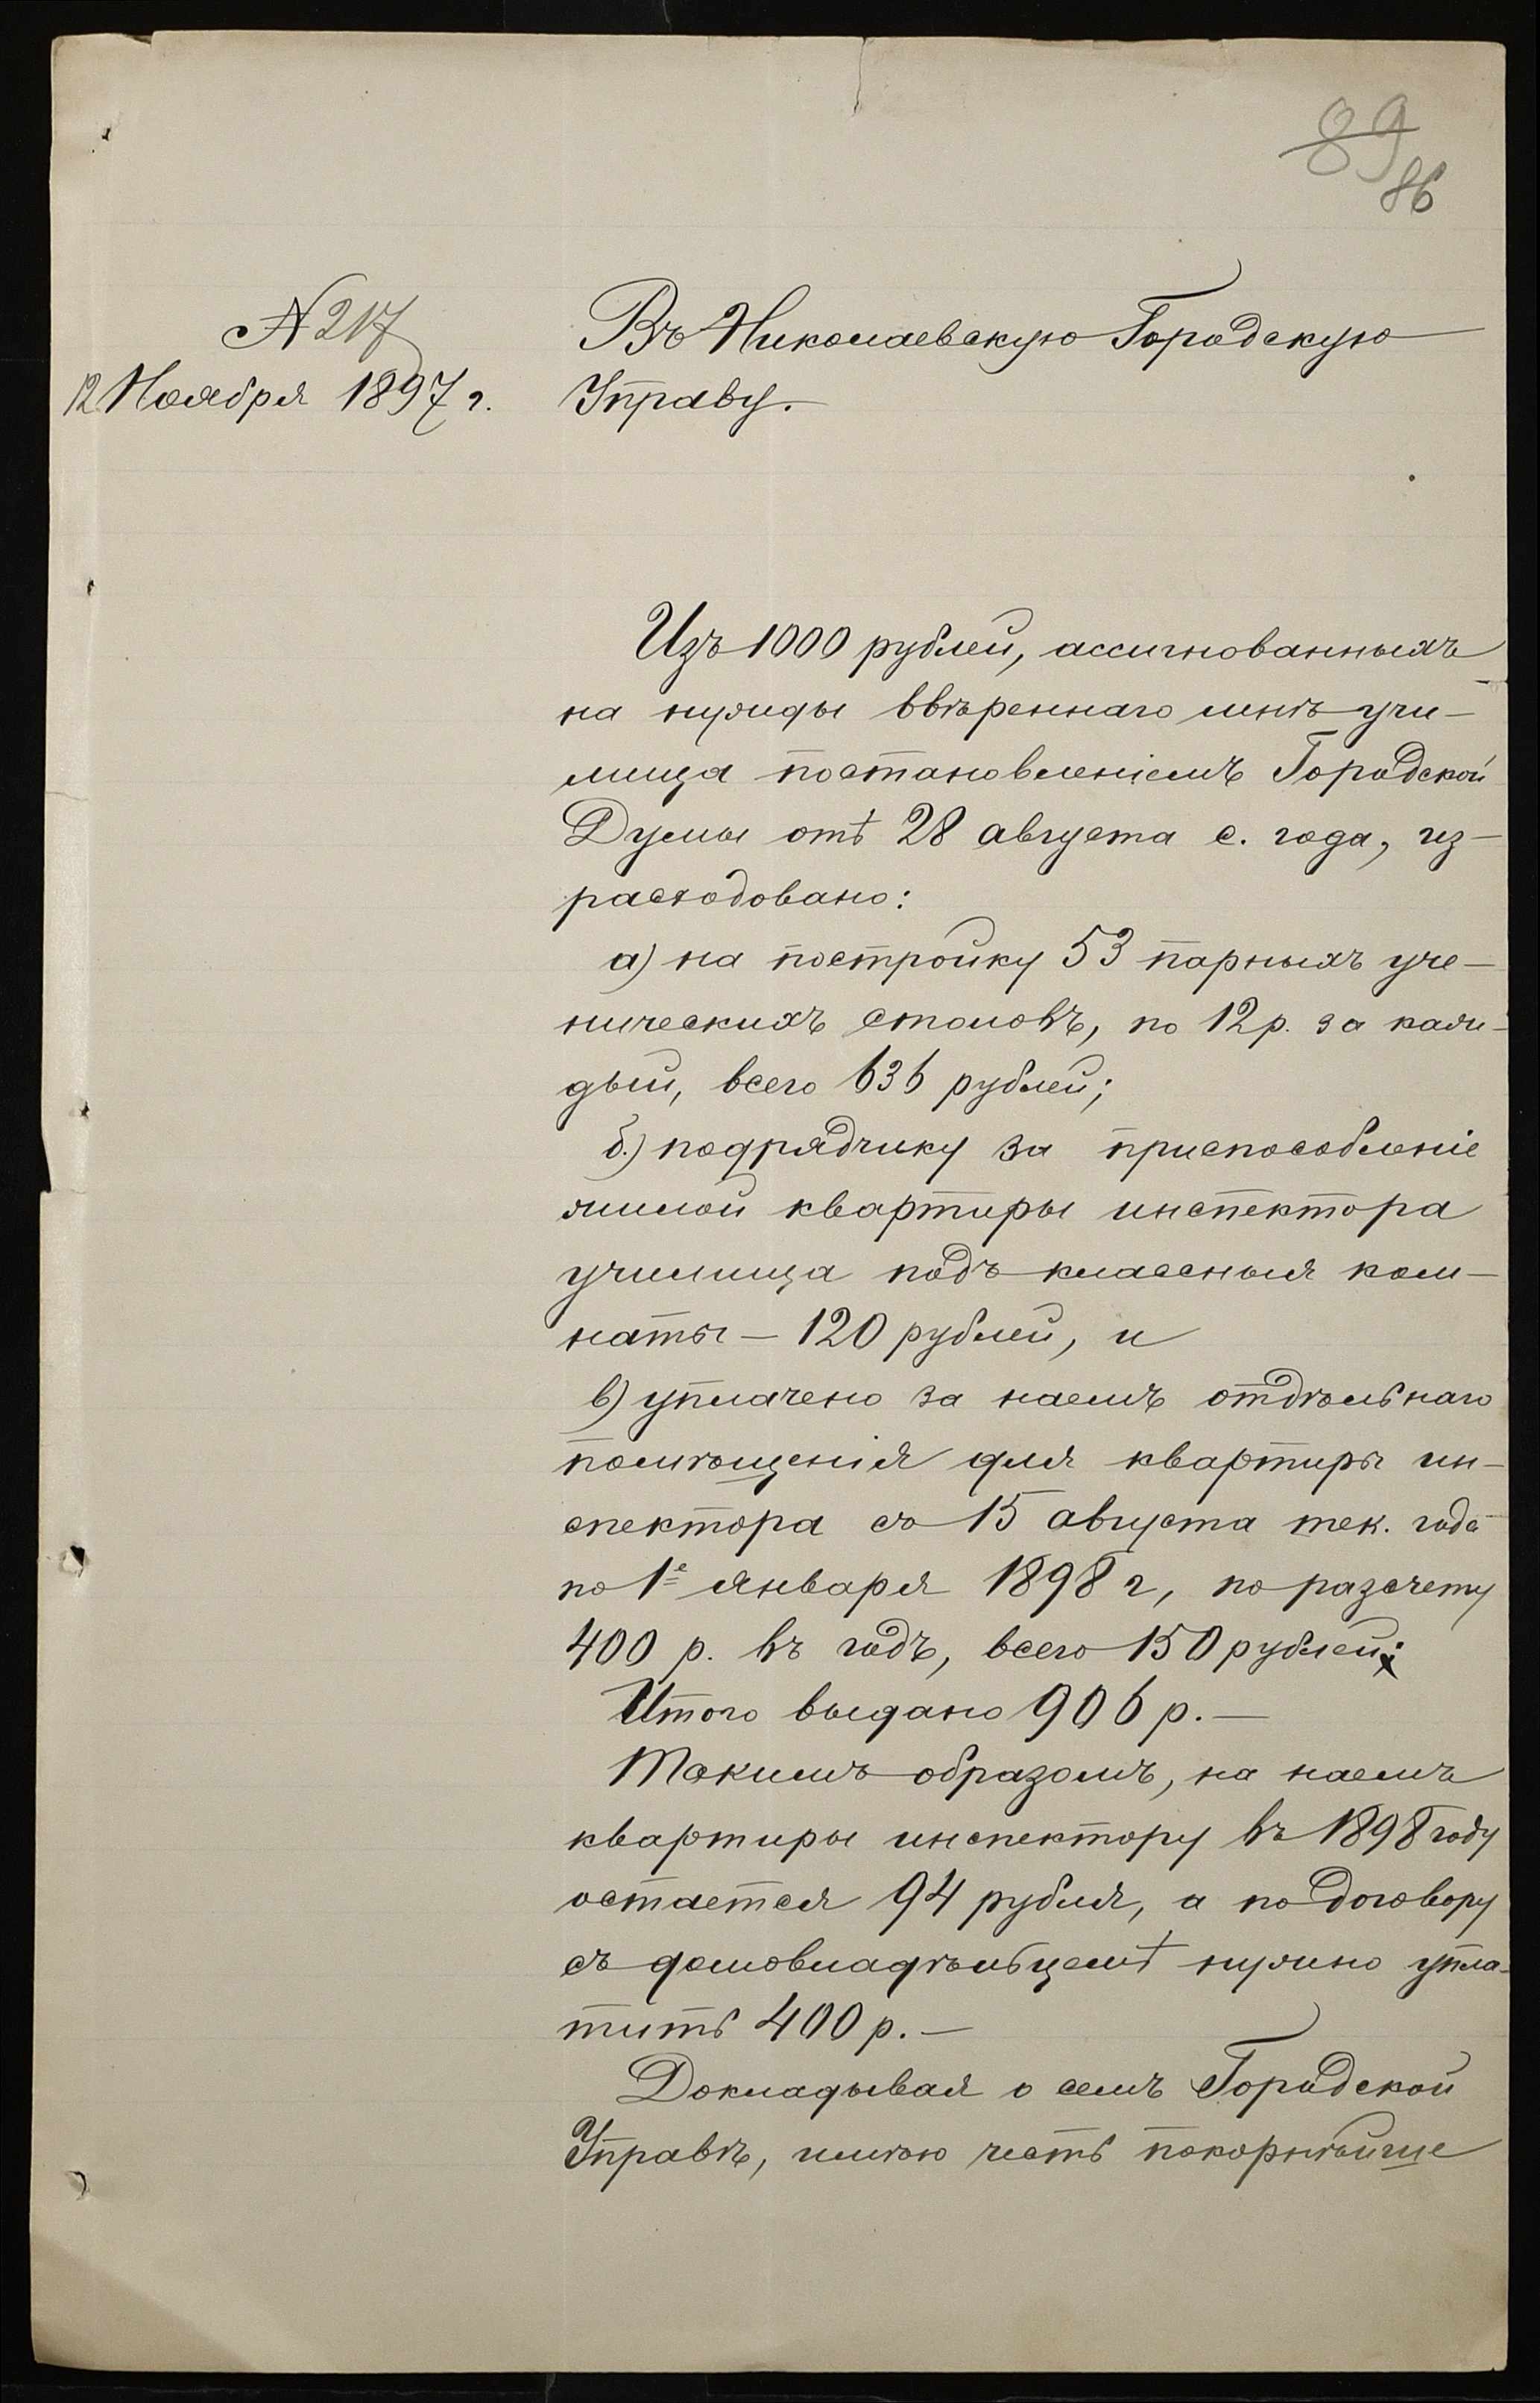 89
86
№ 217
12 Ноября 1897 г.
Въ Николаевскую Городскую
Управу.
Изъ 1000 рублей, ассигнованныхъ
на нужды ввѣреннаго мнѣ учи-
лища постановленіемъ Городской
Думы отъ 28 августа с. года, из-
расходовано:
а) на постройку 53 парныхъ уче-
ническихъ столовъ, по 12 р. за каж-
дый, всего 636 рублей;
б.) подрядчику за приспособленіе
жилой квартиры инспектора
училища подъ классныя ком-
наты – 120 рублей, и
в) уплачено за наемъ отдѣльнаго
помѣщенія для квартиры ин-
спектора съ 15 августа тек. года
по 1е января 1898 г, по разсчету
400 р. въ годъ, всего 150 рублей;
Итого выдано 906 р. —
Такимъ образомъ, на наемъ
квартиры инспектору въ 1898 году
остается 94 рубля, а по договору
съ домовладѣльцемъ нужно упла-
тить 400 р. —
Докладывая о семъ Городской
Управѣ, имѣю честь покорнѣйше